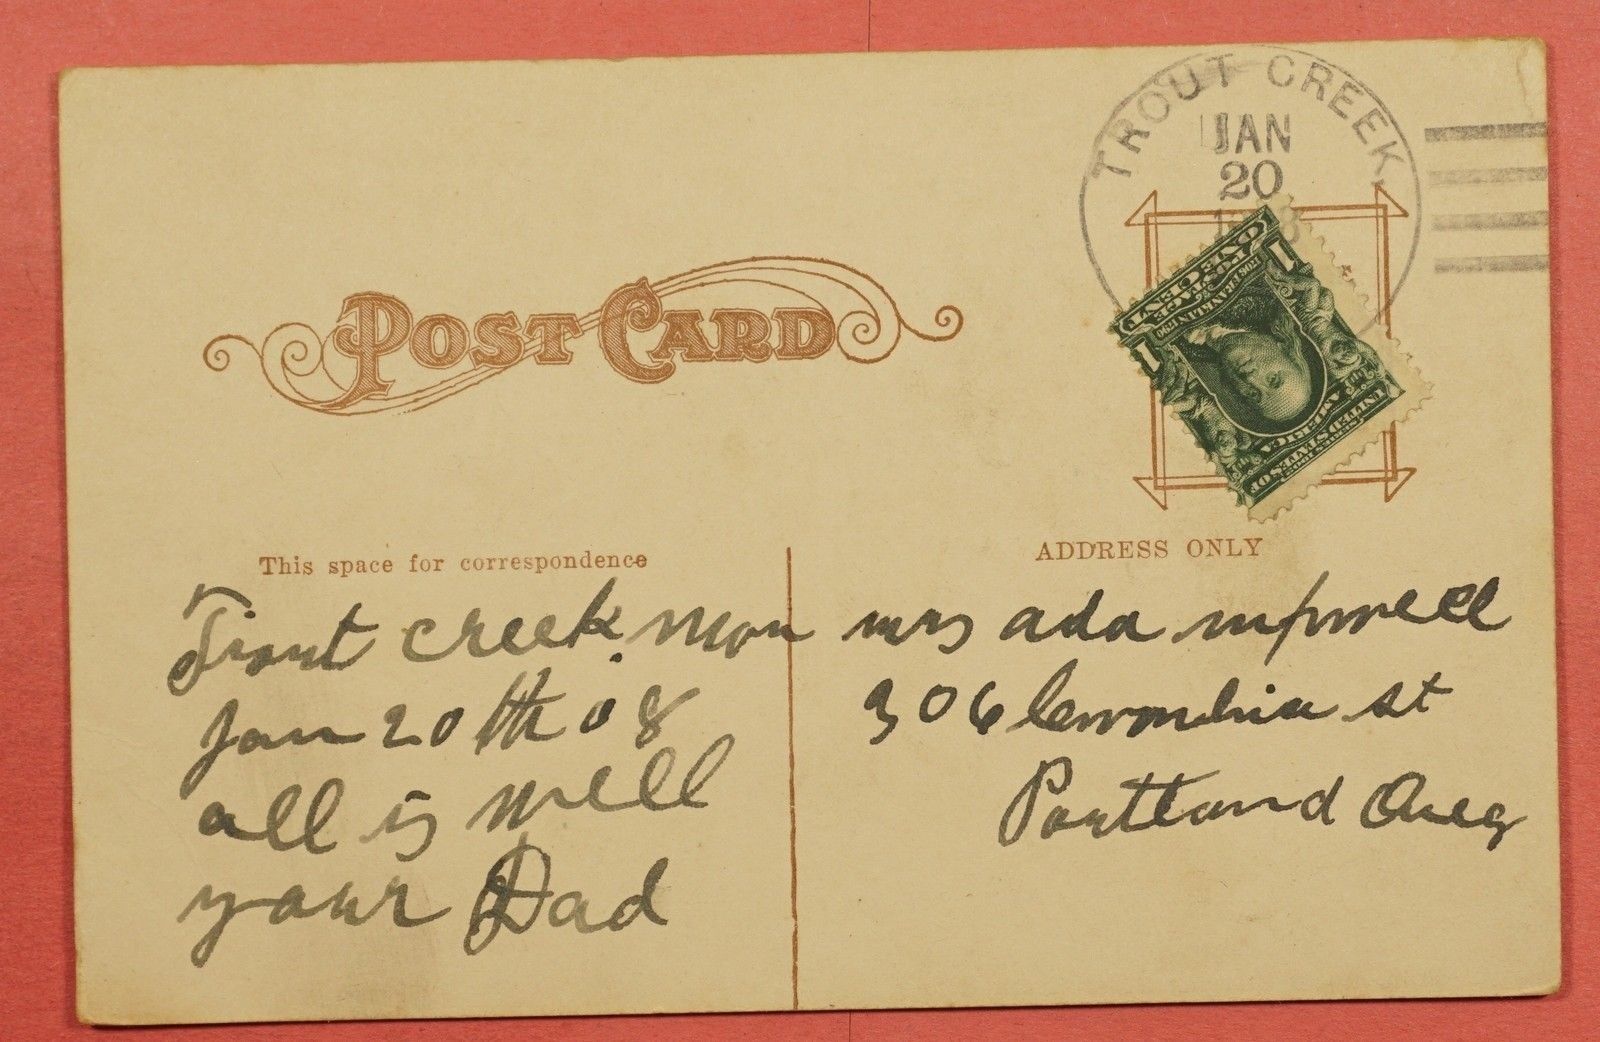 TROUT CREEK,
JAN
20
POST CARD
ONE CENT
POSTAGE
FRANKLIN 1790
1 1
SERIES 1902
UNITED STATES OF
AMERICA
This space for correspondence
ADDRESS ONLY
Trout creek mon
Jan 20 th 08
all is well
your Dad
mrs ada
306 st
Portland Oreg